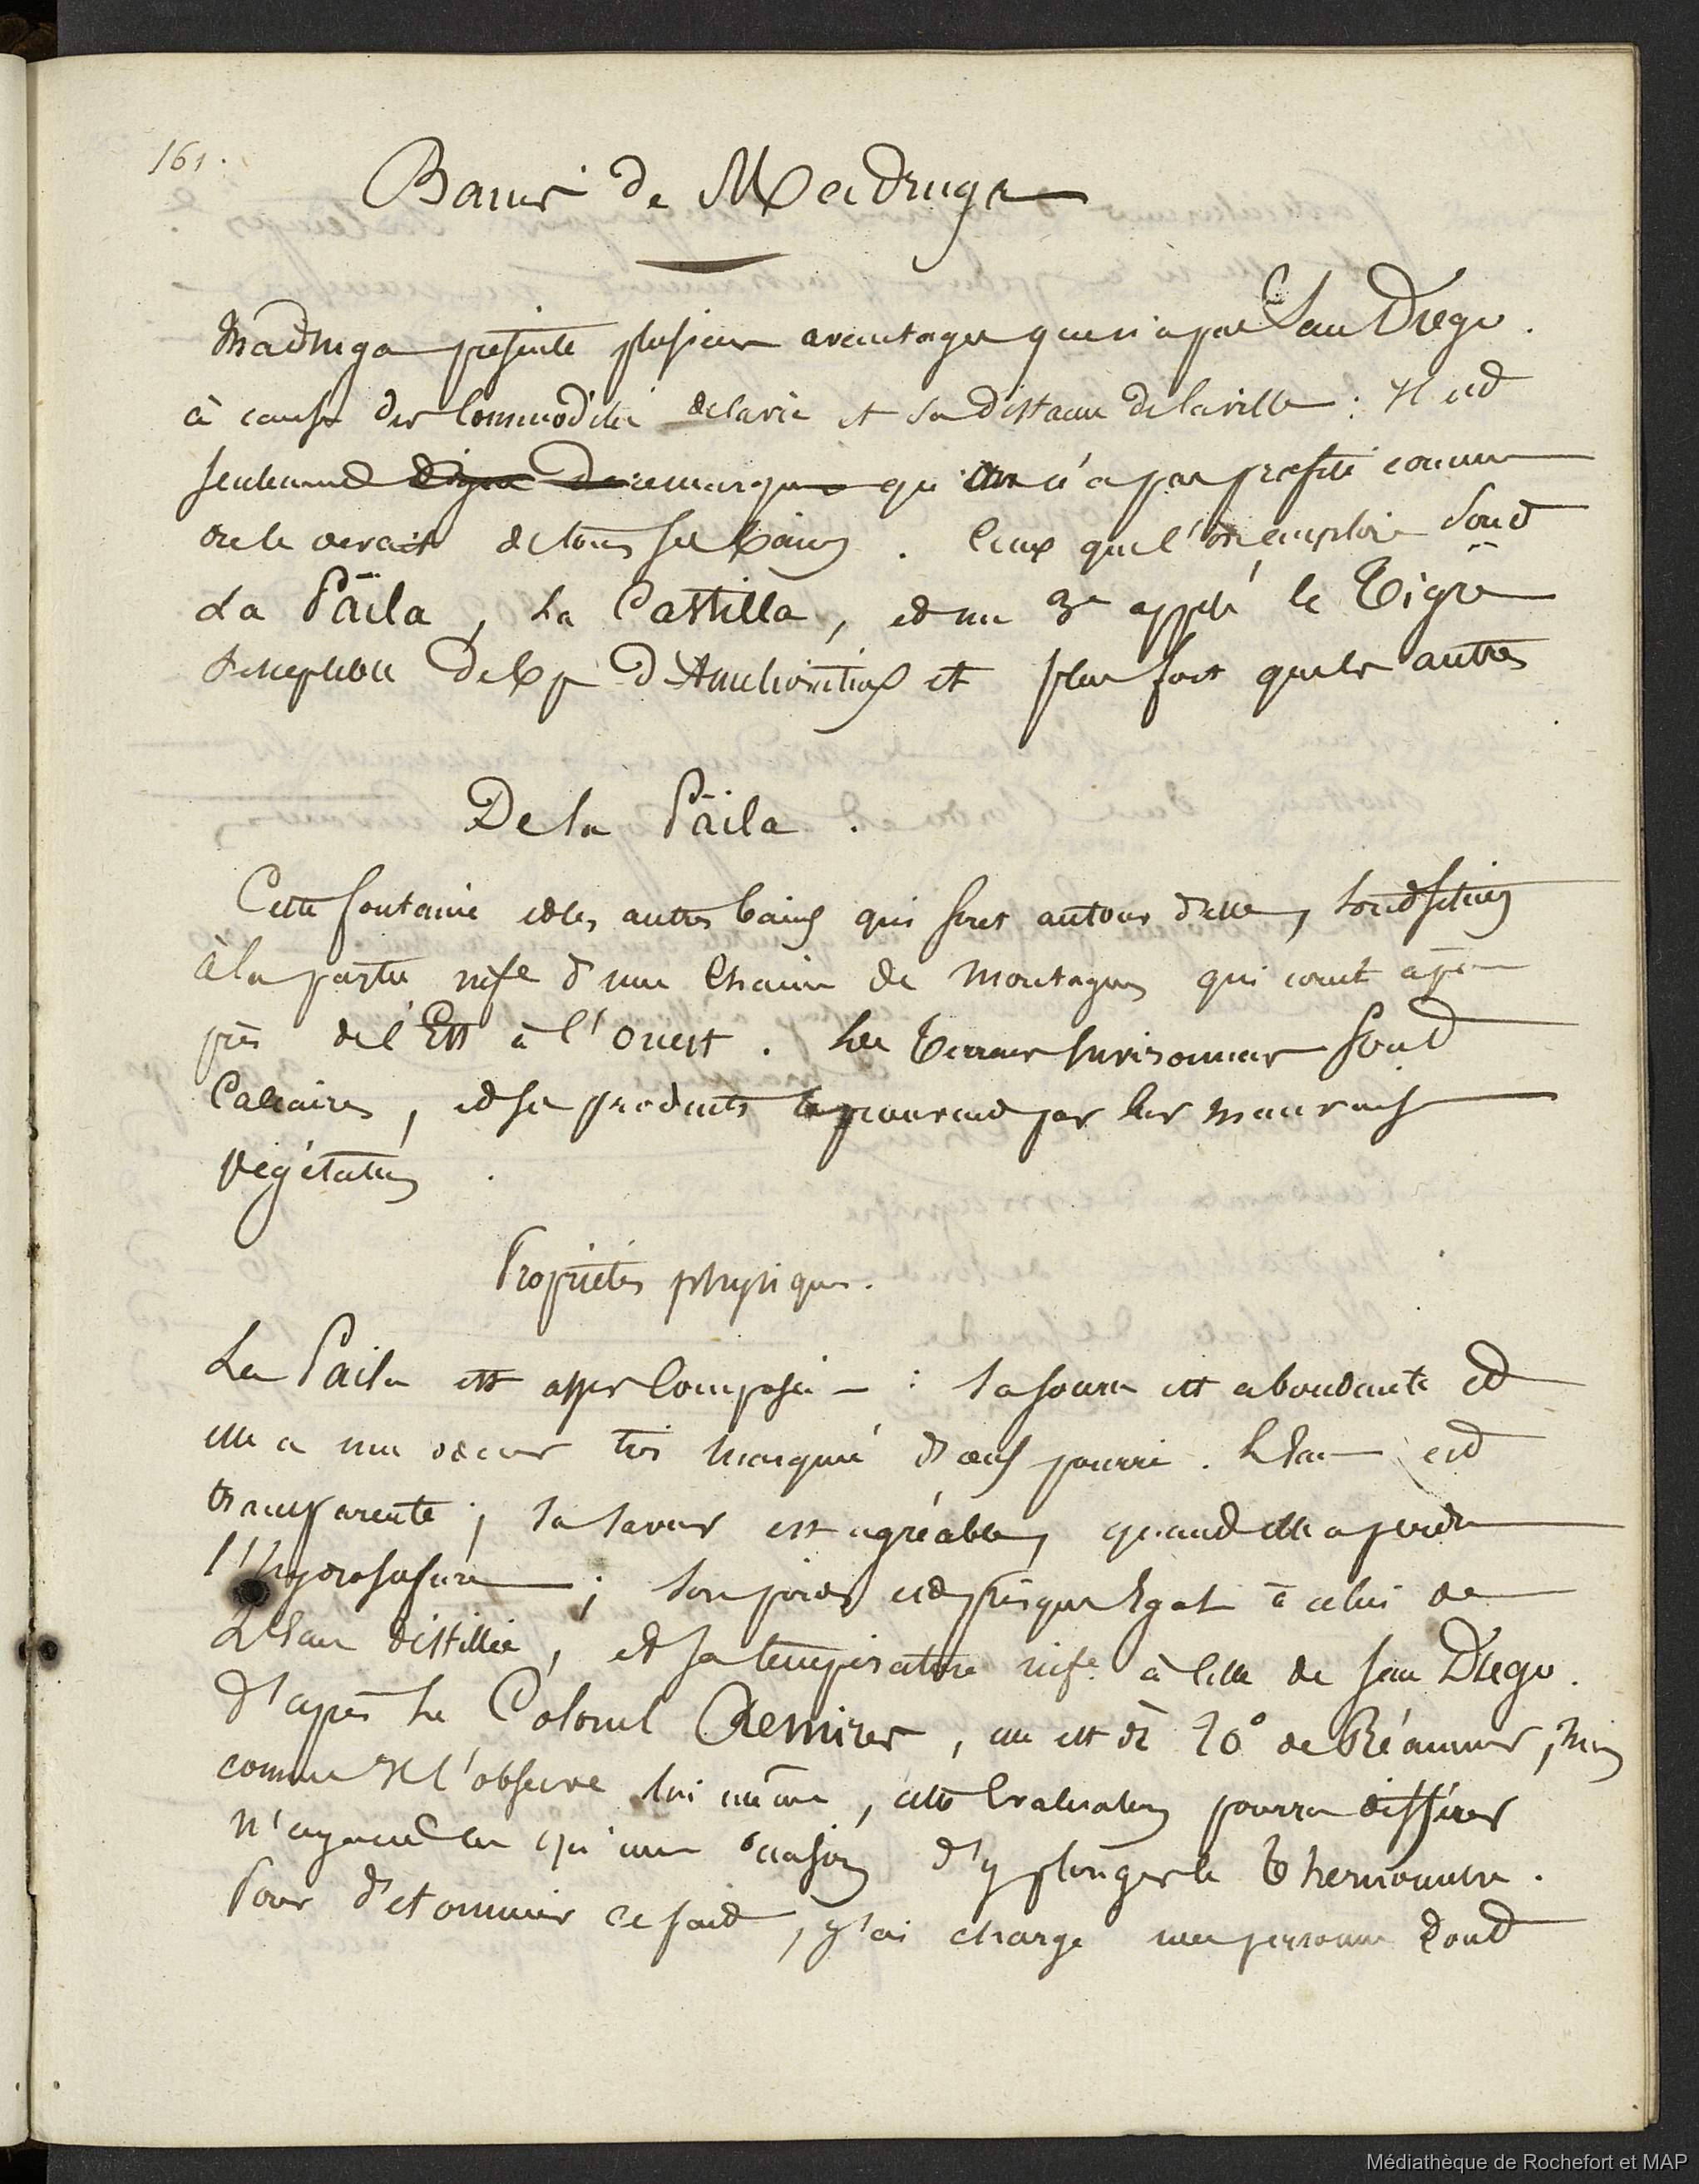 161.
Bains de Madruga
Madruga presente plusieurs avantages que n'a pas San Diego.
à cause des commodités de la vie et sa distance de la ville : Il est
seulement digne de remarque qu'on n'a pas profité comme
on le devrait de tous ses bains. Ceux que l'on emploie sont
La Päila, La Castilla, et un 3e appelé le Tigre
d'Améliorations et plus fort que les autres
De la Päila.
Cette fontaine et les autres bains qui sont autour d'elle, sont situés
à la partie infre d'une Chaine de Montagnes qui court à peu
près de l'Est à l'Ouest. Les terrains sont
Calcaires, et ses produits par leur mauvaise
végétation.
Propriétés physiques.
La Paila est assez Composée : sa source est abondante et
elle a une odeur très marquée d'œufs pourris. L'Eau est
transparente ; sa saveur est agréable, quand elle a perdu
l'hydrosulfure ; son poids est presque Egal à celui de
L'Eau distillée, et sa température infre à celle de San Diego.
D'après Le Colonel Remirez, elle est de 20° de Réaumur, mais
comme Il l'observe lui même, cette Evaluation pourra différer
n'ayant eu qu'une occasion d'y plonger le Thermomètre.
Pour ce fait, j'ai chargé une personne dont
Médiathèque de Rochefort et MAP